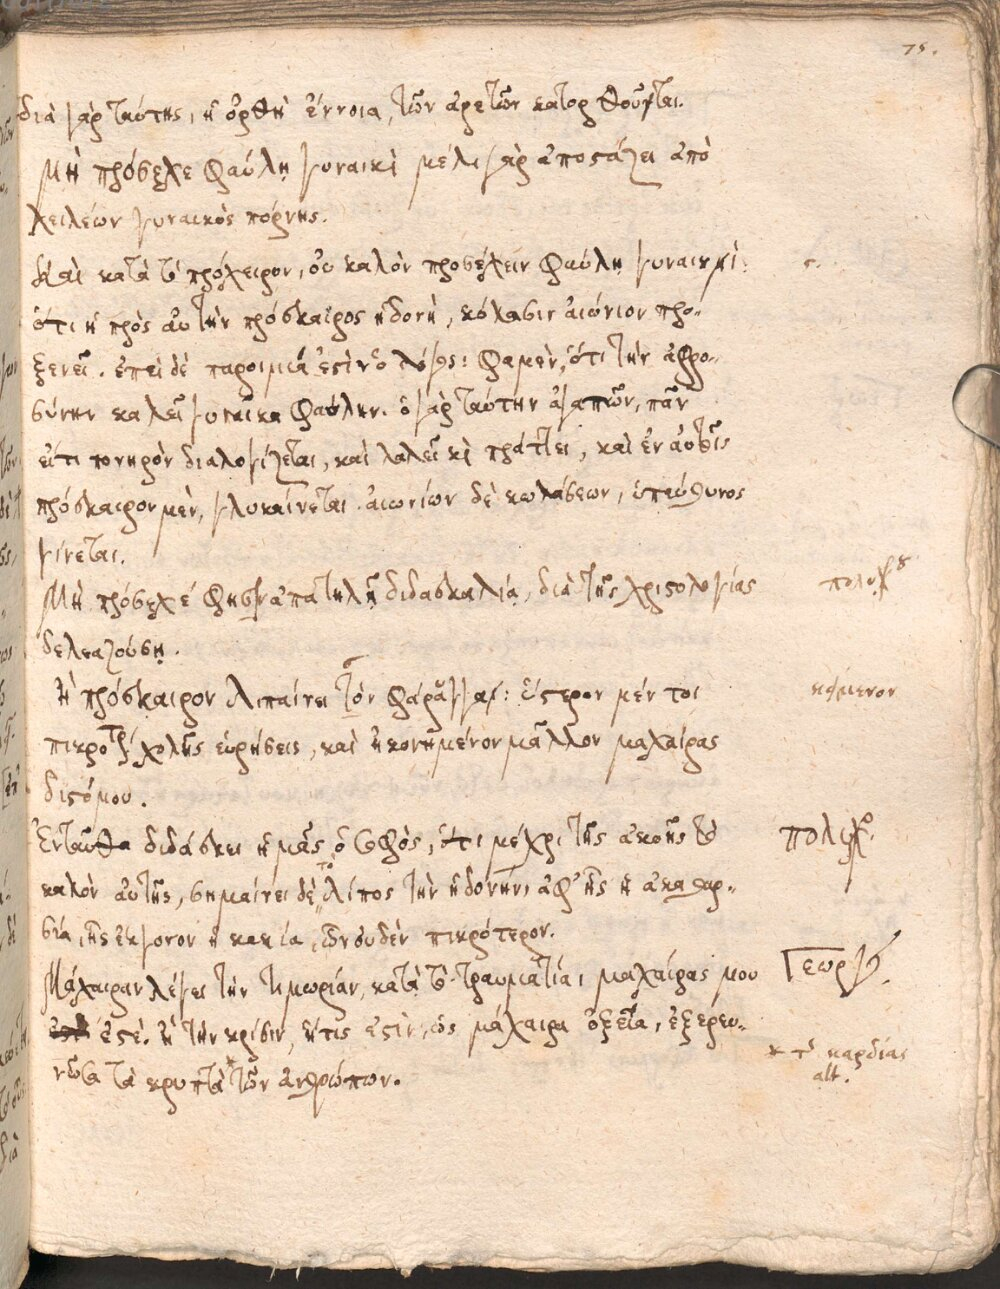 75.
διὰ γὰρ ταύτης, ἡ ὀρθὴ ἔννοια, τῶν ἀρετῶν κατορθοῦται.
Μὴ πρόσεχε φαύλῃ γυναικὶ μέλι γὰρ ἀποστάζει ἀπὸ
χειλέων γυναικὸς πόρνης.
Καὶ κατὰ τὸ πρόχειρον, οὐ καλὸν προσέχειν φαύλῃ γυναικὶ:
ὅτι ἡ πρὸς αὐτὴν πρόσκαιρος ἡδονὴ, κόλασιν αἰώνιον προ-
ξενεῖ. ἐπεὶ δὲ παροιμία ἐστὶν ὁ λόγος: φαμὲν, ὅτι τὴν ἀφρο-
σύνην καλεῖ γυναῖκα φαύλην. ὁ γὰρ ταύτην ἀγαπῶν, πᾶν
εἴτι πονηρὸν διαλογίζεται, καὶ λαλεῖ κὶ πράττει, καὶ ἐν αὐτοῖς
πρόσκαιρον μὲν, γλυκαίνεται. αἰωνίων δὲ κωλάσεων, ὑπεύθυνος
γίνεται.
Μὴ πρόσεχέ φησιν ἀπατηλῇ διδασκαλίᾳ, διὰ τῆς χρηστολογίας
δελεαζούσῃ.
Ἣ πρόσκαιρον λιπαίνει τὸν φάρυγγα: ὕστερον μέν τοι
κείμενον
πικρότερον χολῆς εὑρήσεις, καὶ ἠκονημένον μᾶλλον μαχαίρας
διστόμου.
Ἐνταῦθα διδάσκει ἡμᾶς ὁ σοφὸς, ὅτι μέχρι τῆς ἀκοῆς τὸ
καλὸν αὐτῆς, σημαίνει δὲ τὸ λίπος τὴν ἡδονὴν, ἀφ' ἧς ἡ ἀκαθαρ-
σία, ἧς ἔκγονον ἡ κακία, ὧν οὐδὲν πικρότερον.
Μάχαιραν λέγει τὴν τιμωρίαν, κατὰ τὸ τραυματία, μαχαίρας μου
Γεωργ
ἐστέ. ἢ τὴν κρίσιν, ἥτις ἐστὶν, ὡς μάχαιρα ὀξεῖα, ἐξερευ-
νῶσα τὰ κρυπτὰ τῶν ἀνθρώπων.
καρδίας
alt.